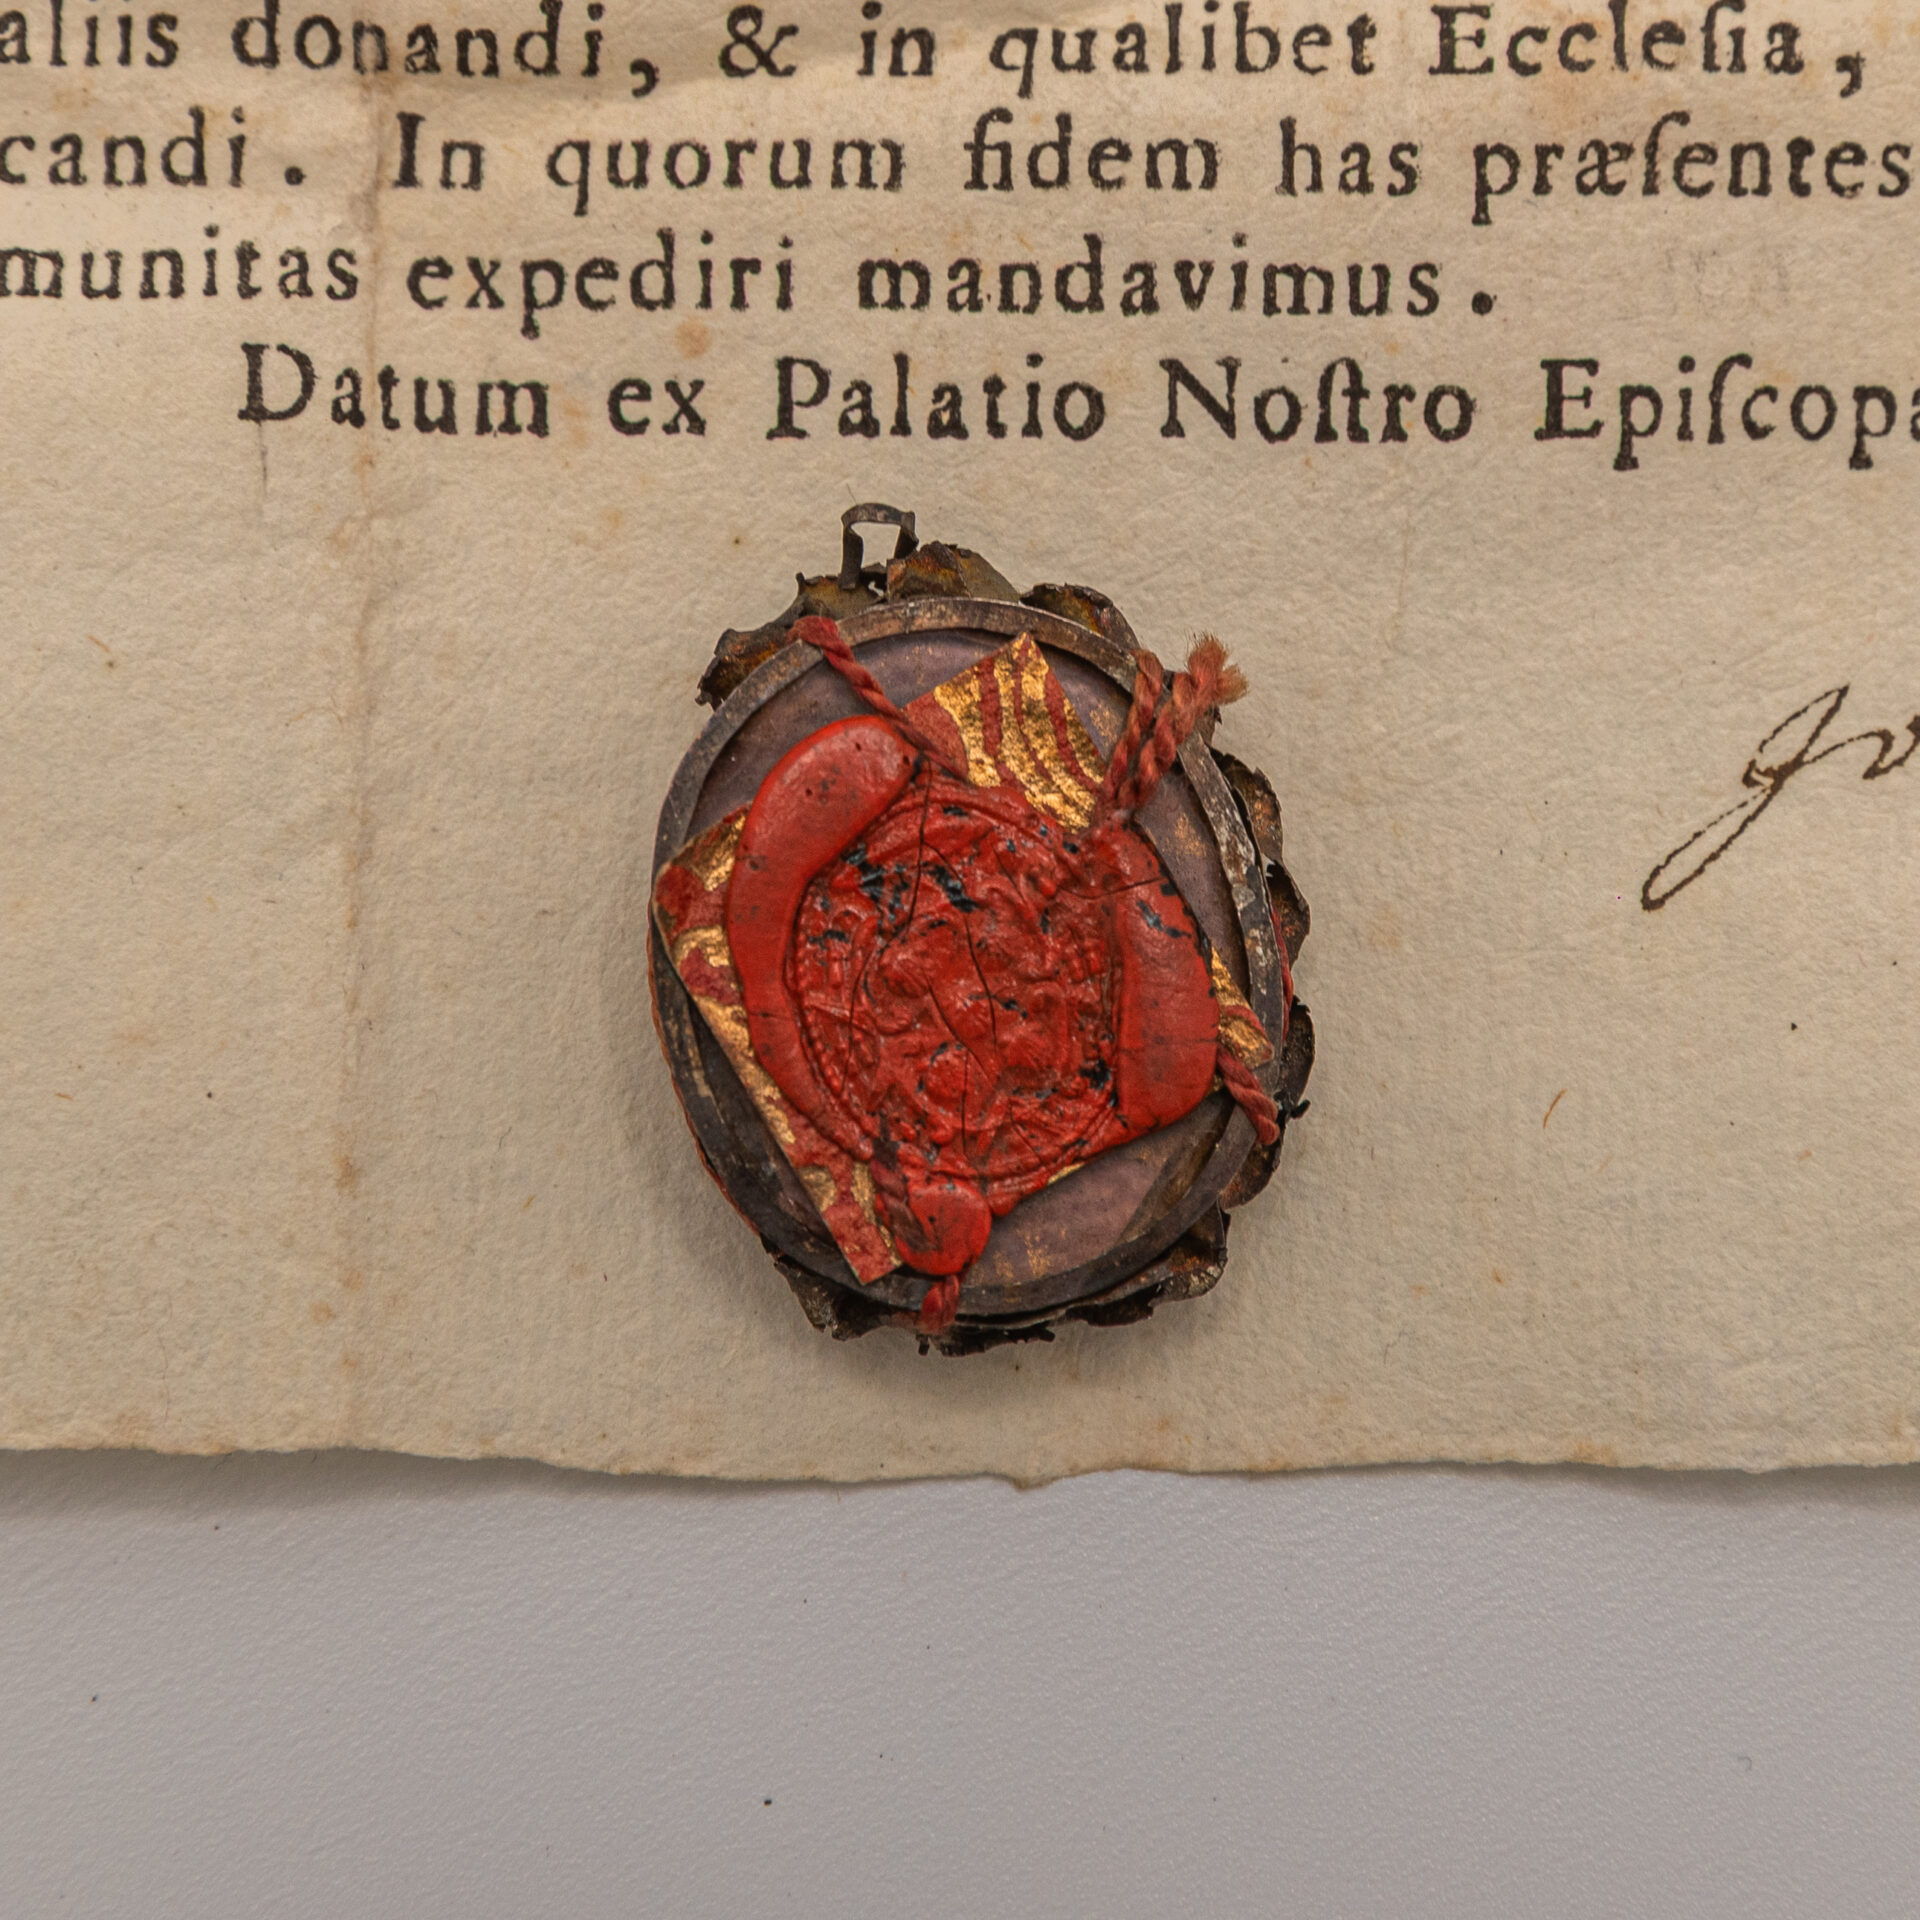 aliis donandi, & in qualibet Eccleſia,
candi. In quorum fidem has præſentes
munitas expediri mandavimus.
Datum ex Palatio Noſtro Epiſcopa